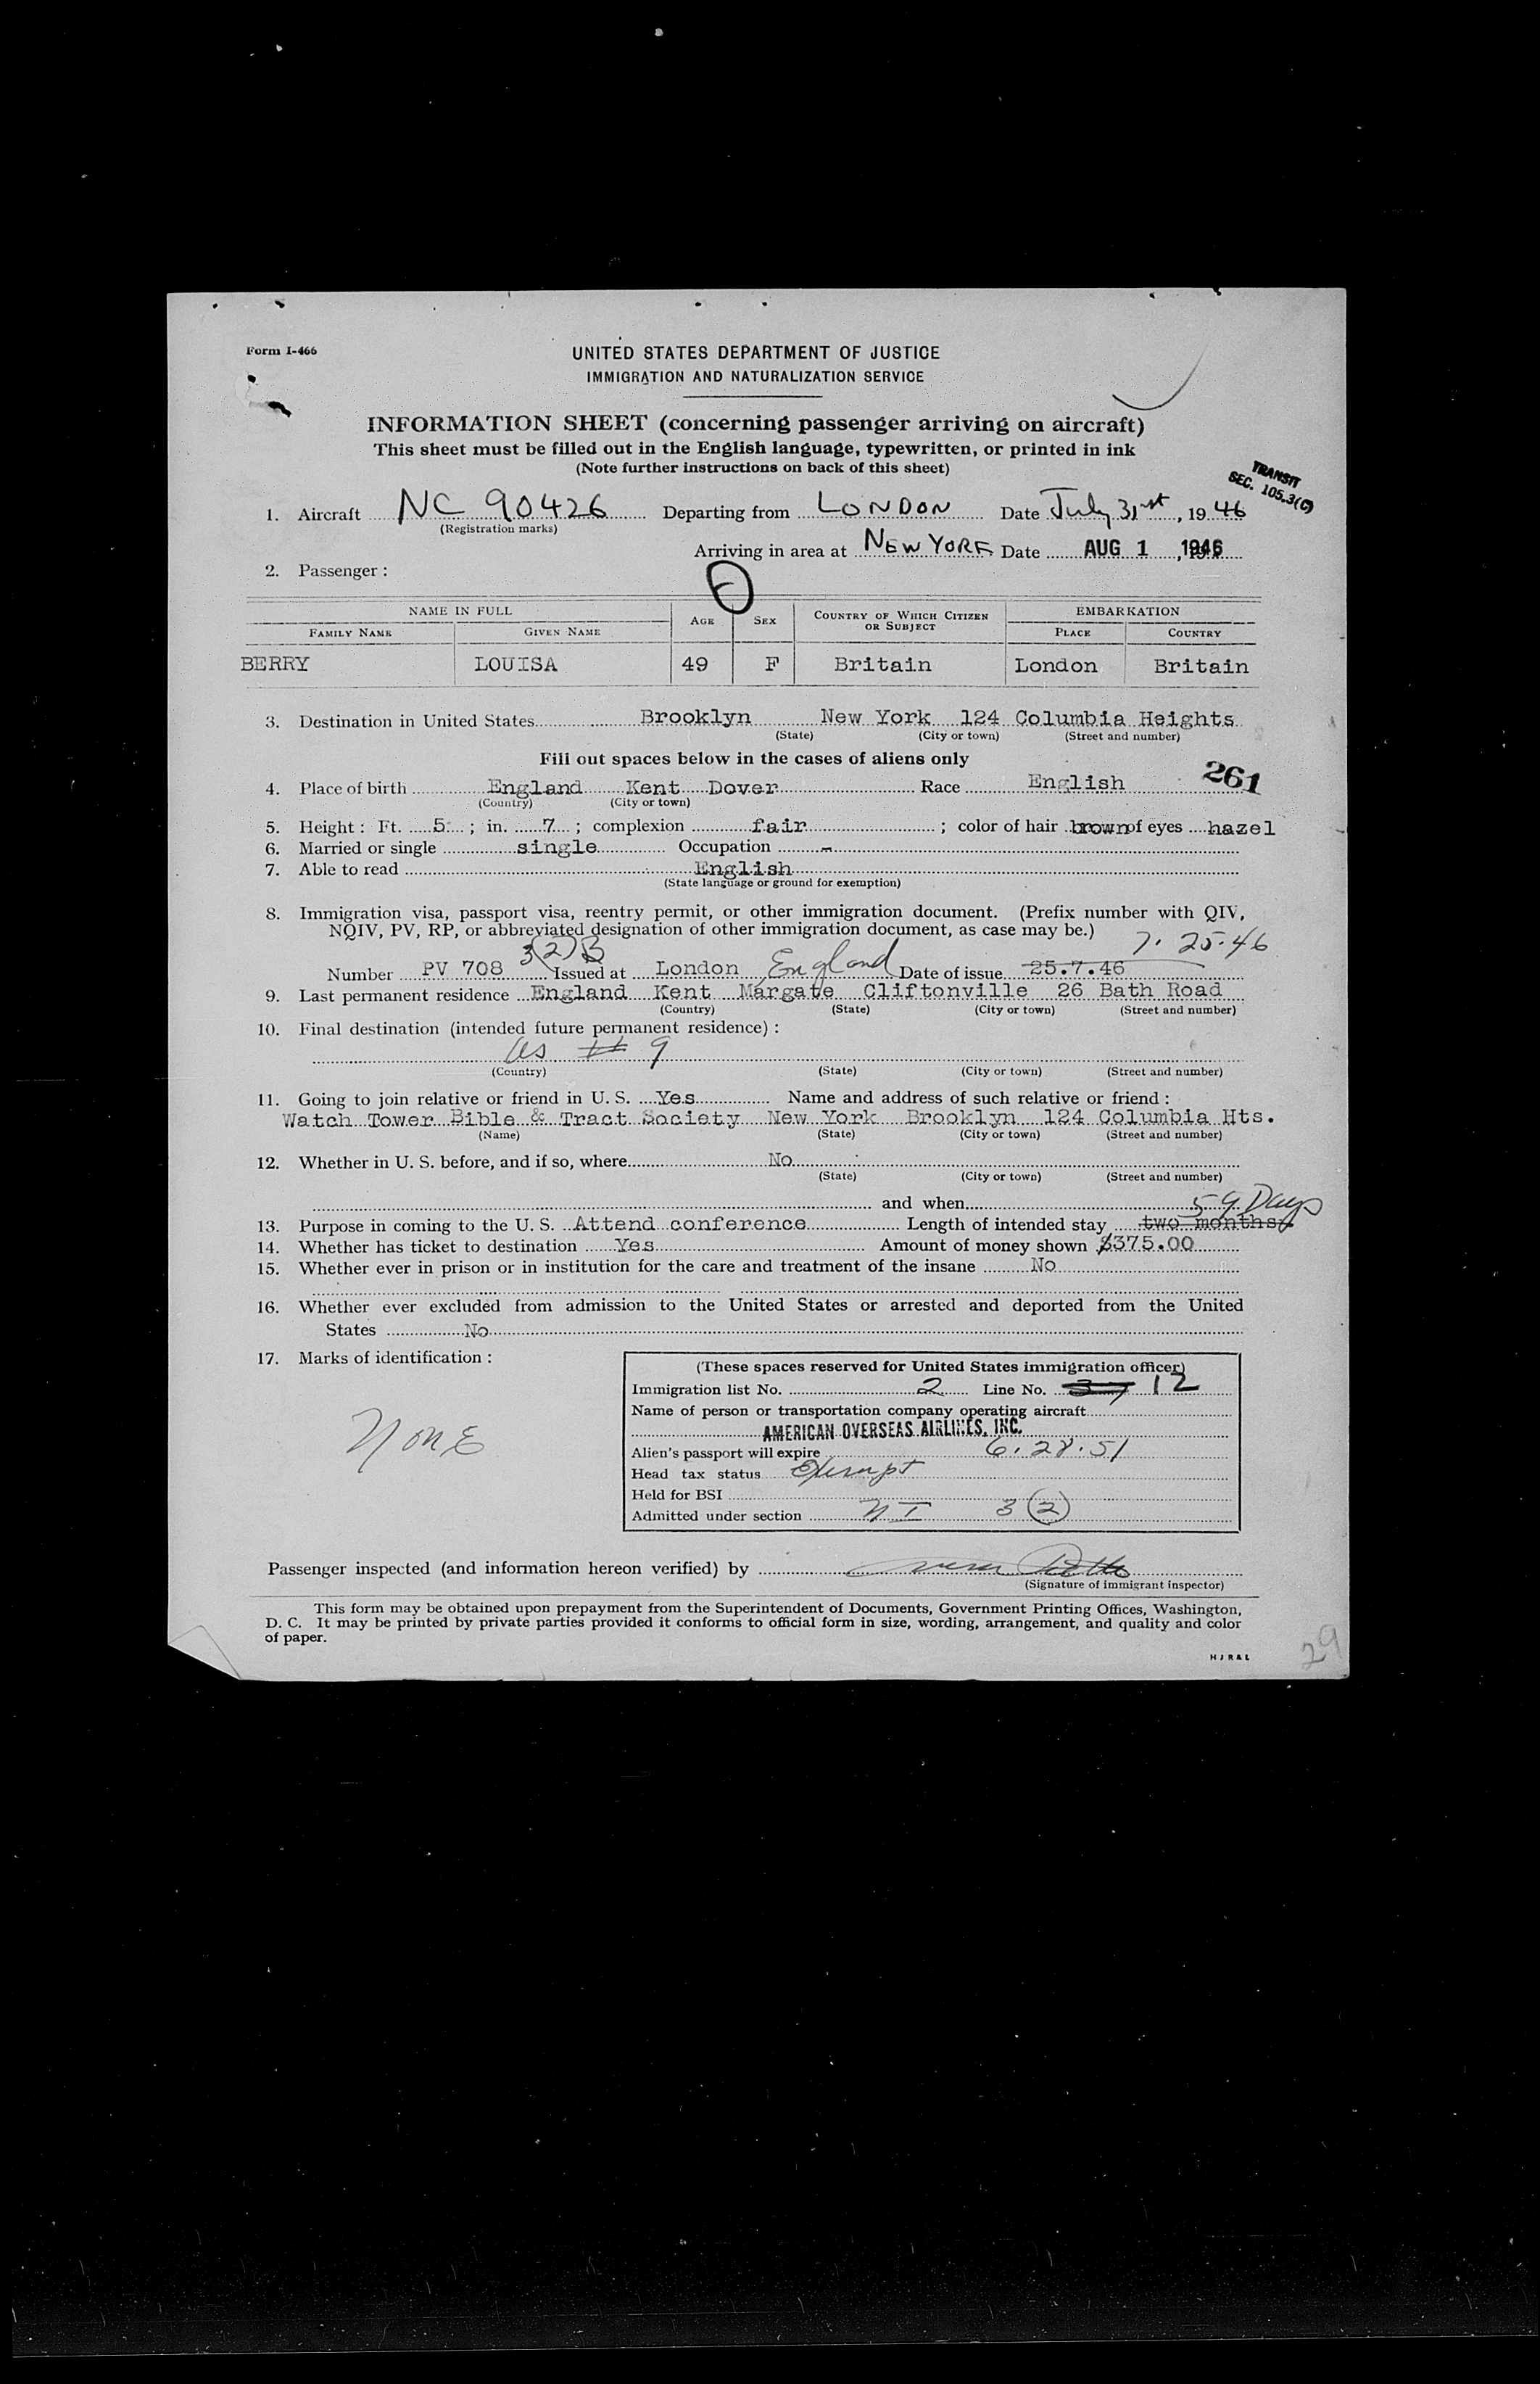 Form I-466
UNITED STATES DEPARTMENT OF JUSTICE
IMMIGRATION AND NATURALIZATION SERVICE
INFORMATION SHEET (concerning passenger arriving on aircraft)
This sheet must be filled out in the English language, typewritten, or printed in ink
(Note further instructions on back of this sheet)
TRANSIT
SEC. 105.3(C)
1. Aircraft NC 90426 Departing from LONDON Date July 31st, 1946
(Registration marks)
Arriving in area at NEW YORK Date AUG 1, 1946
2. Passenger :
NAME IN FULL AGE SEX COUNTRY OF WHICH CITIZEN OR SUBJECT EMBARKATION
FAMILY NAME GIVEN NAME PLACE COUNTRY
BERRY LOUISA 49 F Britain London Britain
3. Destination in United States Brooklyn New York 124 Columbia Heights
(State) (City or town) (Street and number)
Fill out spaces below in the cases of aliens only
261
4. Place of birth England Kent Dover Race English
(Country) (City or town)
5. Height : Ft. 5 ; in. 7 ; complexion fair ; color of hair brown of eyes hazel
6. Married or single single Occupation -
7. Able to read English
(State language or ground for exemption)
8. Immigration visa, passport visa, reentry permit, or other immigration document. (Prefix number with QIV,
NQIV, PV, RP, or abbreviated designation of other immigration document, as case may be.)
3(2)B 7.25.46
Number PV 708 Issued at London England Date of issue 25.7.46
9. Last permanent residence England Kent Margate Cliftonville 26 Bath Road
(Country) (State) (City or town) (Street and number)
10. Final destination (intended future permanent residence) :
as # 9
(Country) (State) (City or town) (Street and number)
11. Going to join relative or friend in U. S. Yes Name and address of such relative or friend :
Watch Tower Bible & Tract Society New York Brooklyn 124 Columbia Hts.
(Name) (State) (City or town) (Street and number)
12. Whether in U. S. before, and if so, where No
(State) (City or town) (Street and number)
and when
59 Days
13. Purpose in coming to the U. S. Attend conference Length of intended stay two months
14. Whether has ticket to destination Yes Amount of money shown $375.00
15. Whether ever in prison or in institution for the care and treatment of the insane No
16. Whether ever excluded from admission to the United States or arrested and deported from the United
States No
17. Marks of identification :
None
(These spaces reserved for United States immigration officer)
Immigration list No. 2 Line No. 37 12
Name of person or transportation company operating aircraft
AMERICAN OVERSEAS AIRLINES, INC.
Alien's passport will expire 6.28.51
Head tax status Exempt
Held for BSI
Admitted under section NI 3 (2)
Passenger inspected (and information hereon verified) by
(Signature of immigrant inspector)
This form may be obtained upon prepayment from the Superintendent of Documents, Government Printing Offices, Washington,
D. C. It may be printed by private parties provided it conforms to official form in size, wording, arrangement, and quality and color
of paper.
H J R & L
29